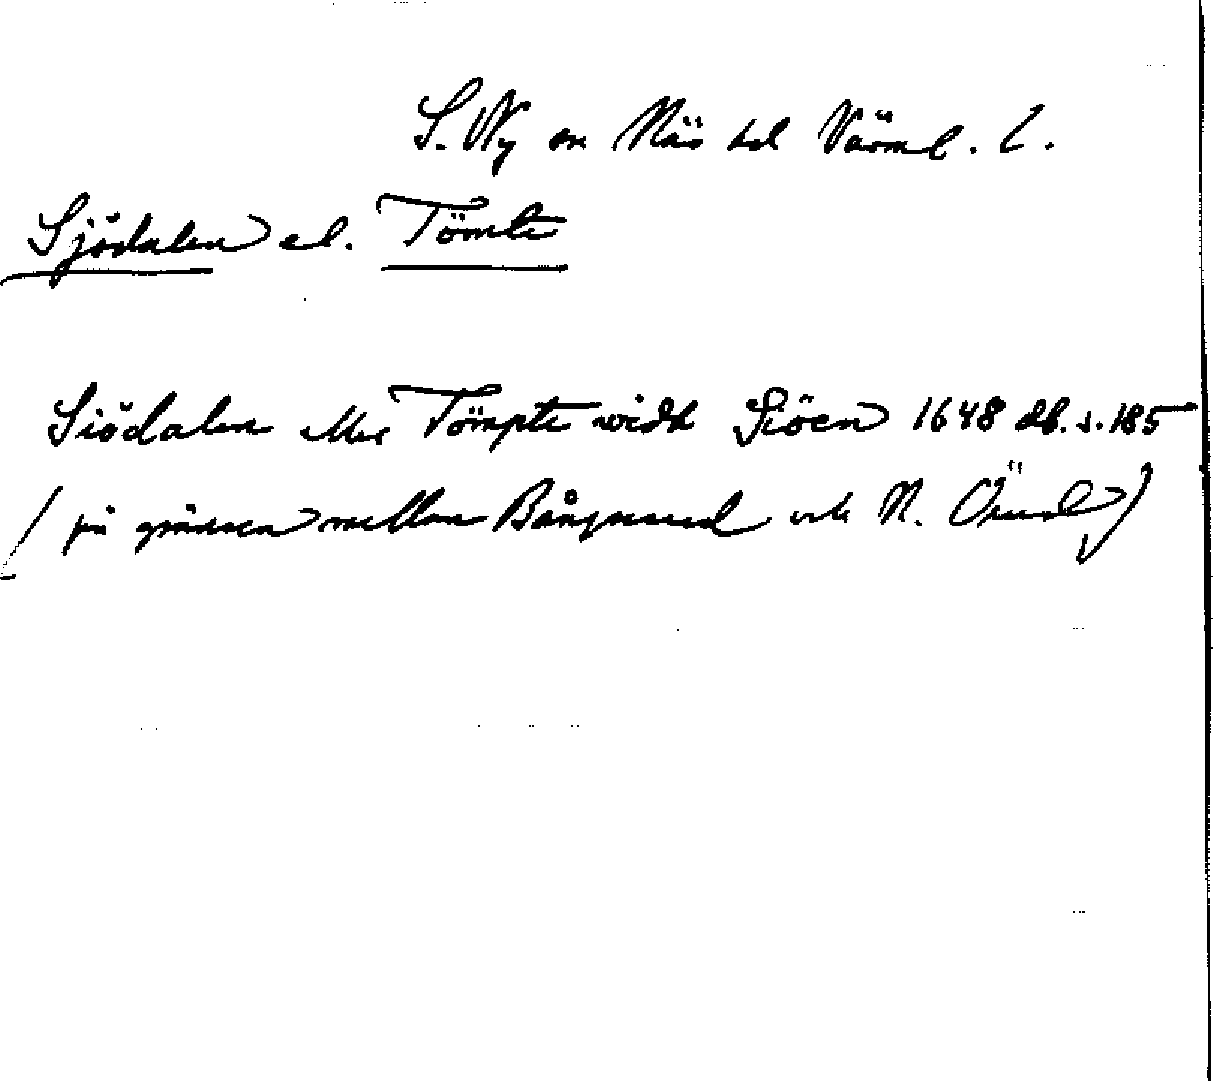 S. Ny sn Näs hd Värml. l.
Sjödalen el. Tömte
Siödalen eller Tömpte widh Siöen 1648 db. s. 185
(på gränsen mellan Bångsrud och N. Örud)